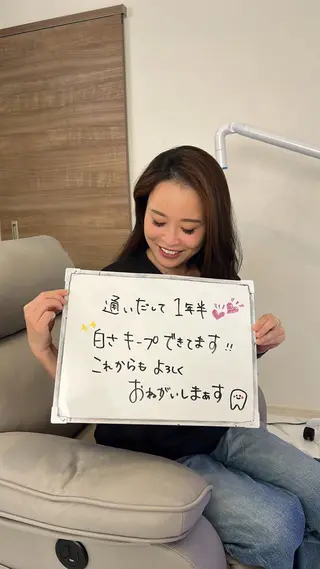 通いだして 1年半
白さ キープ できてます!!
これからも よろしく
おねがいしまぁす